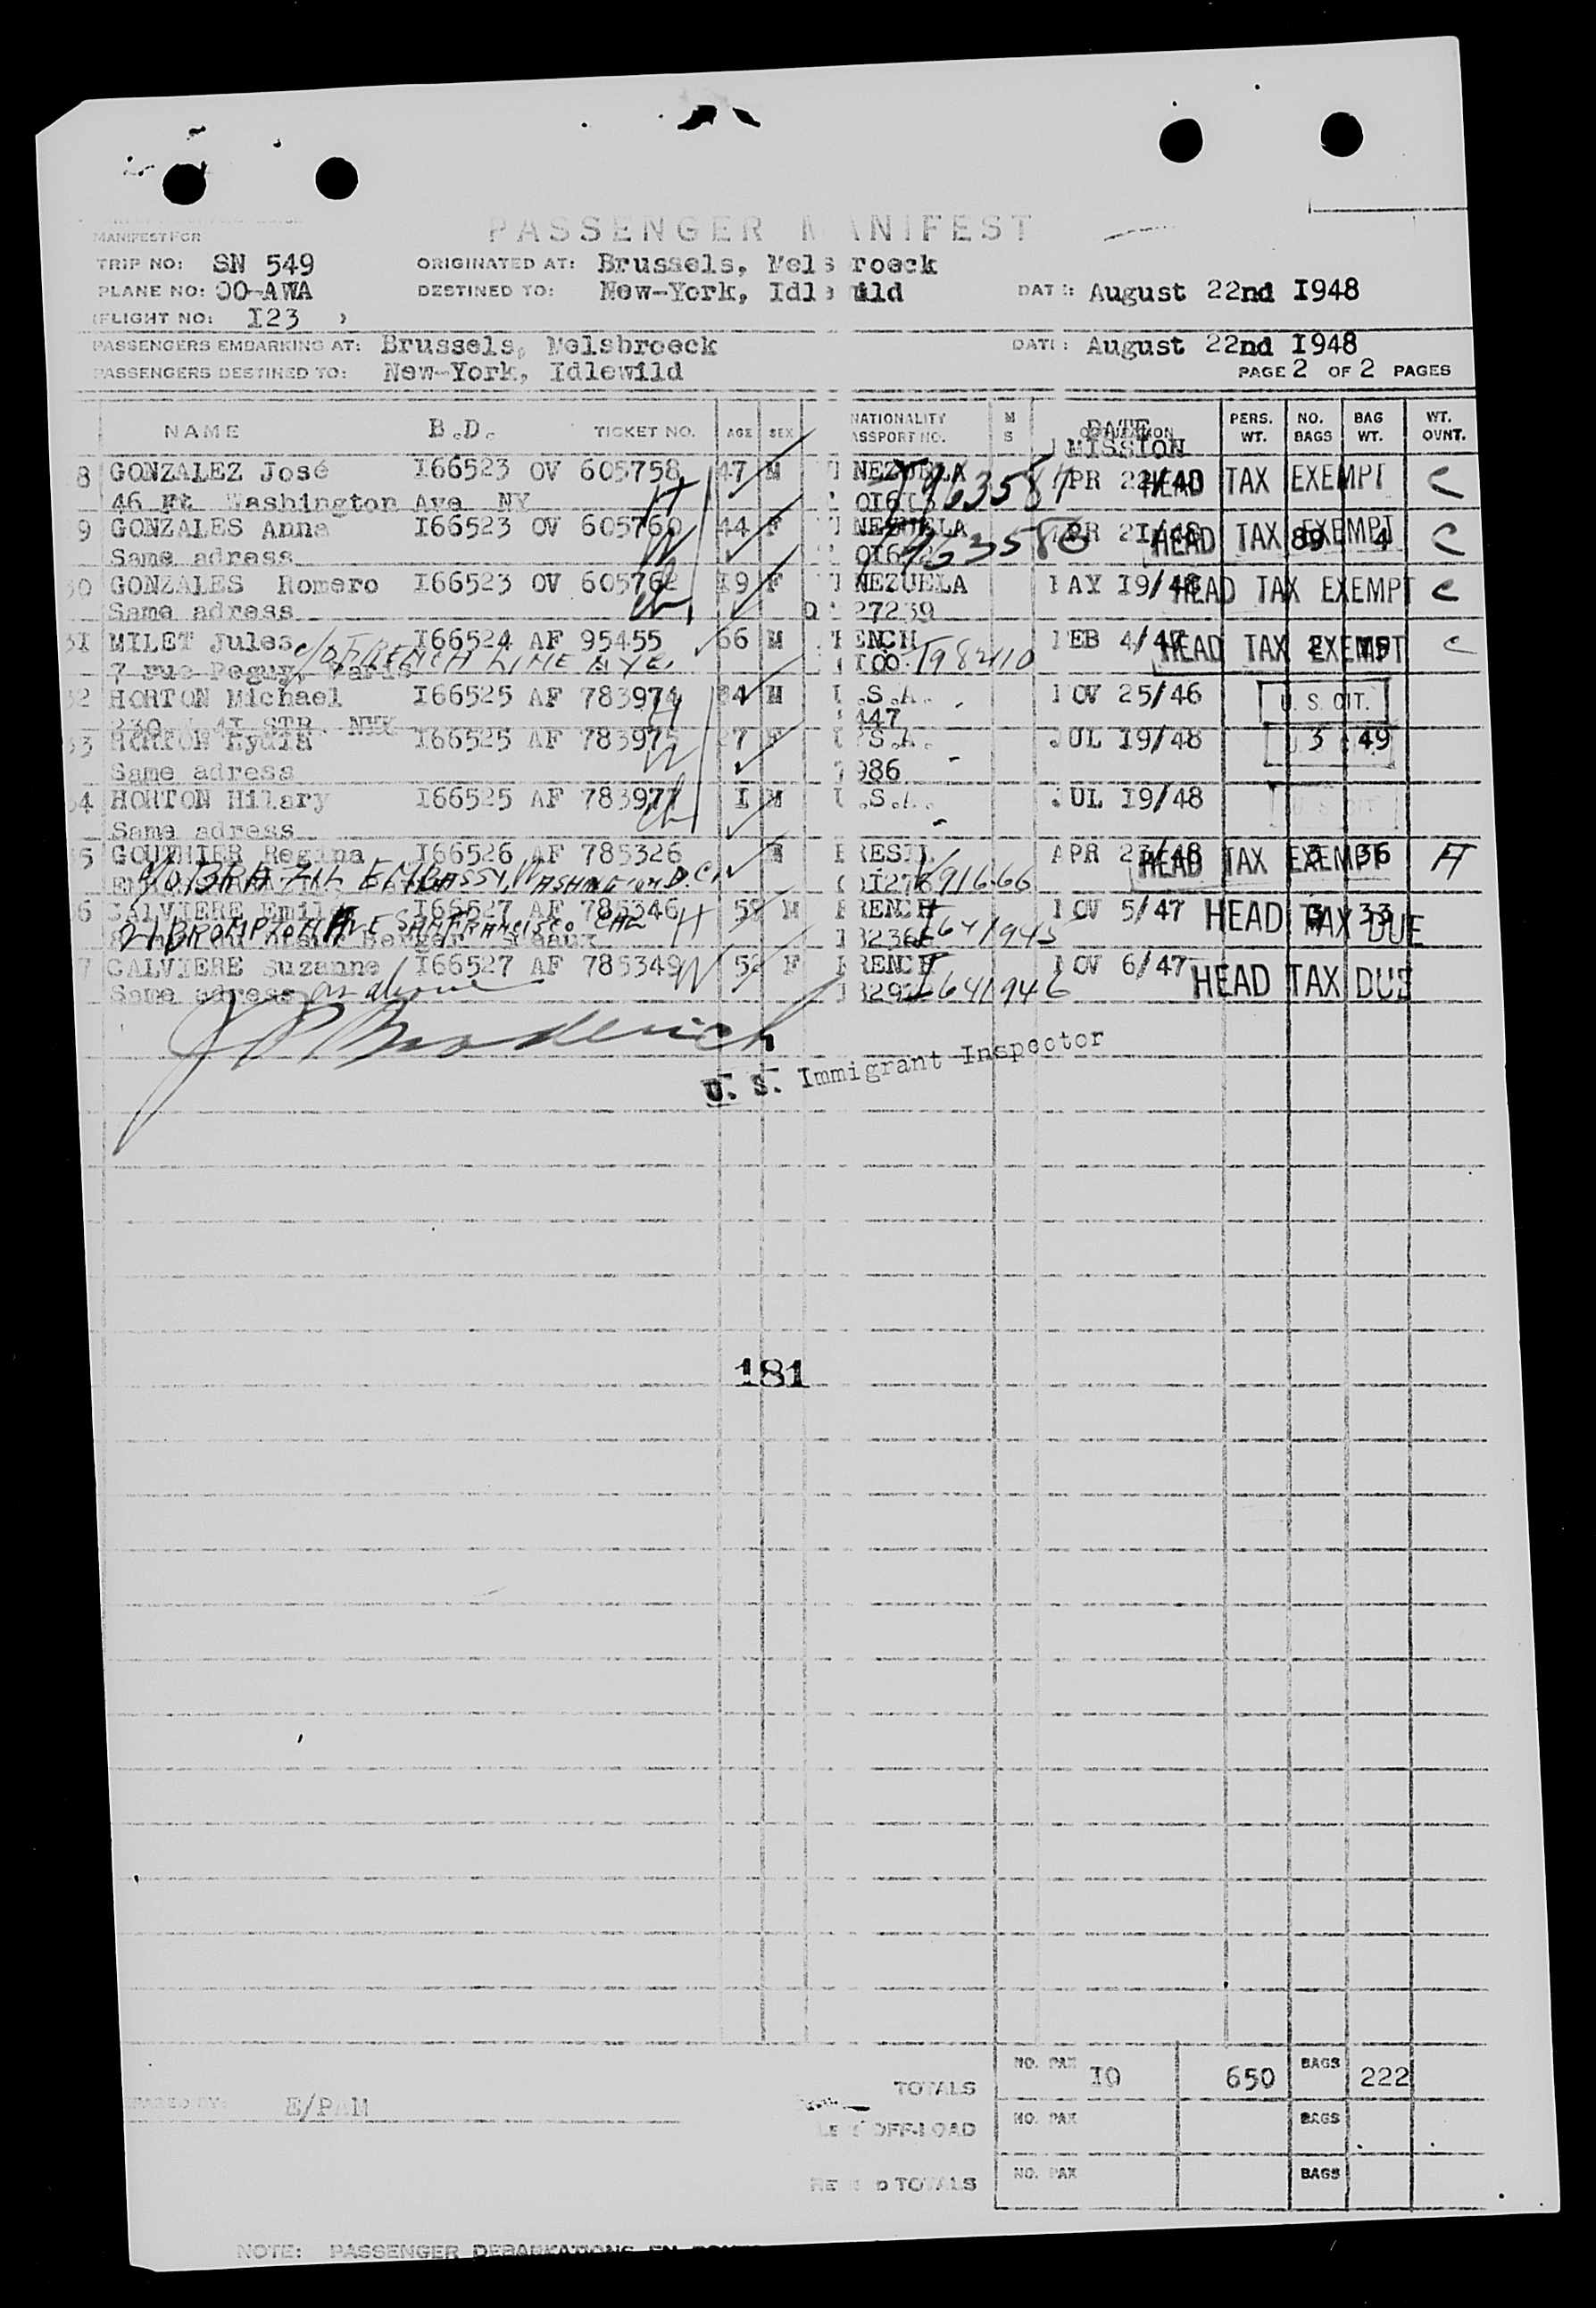 PASSENGER MANIFEST
MANIFEST FOR
TRIP NO: SN 549 ORIGINATED AT: Brussels, Mels roeck
PLANE NO: OO-AWA DESTINED TO: New-York, Idl ild DATE: August 22nd I948
(FLIGHT NO: I23 )
PASSENGERS EMBARKING AT: Brussels, Melsbroeck DATE: August 22nd I948
PASSENGERS DESTINED TO: New-York, Idlewild PAGE 2 OF 2 PAGES
NAME B.D. TICKET NO. AGE SEX NATIONALITY PASSPORT NO. M S DATE MISSION PERS. WT. NO. BAGS BAG WT. WT. OVNT.
8 GONZALEZ José I66523 OV 605758 47 M NEZUELA APR 22/48 HEAD TAX EXEMPT C
46 Ft Washington Ave NY T963587
9 GONZALES Anna I66523 OV 605760 44 F NEZUELA APR 21/48 HEAD TAX EXEMPT 89 4 C
Same adress
30 GONZALES Romero I66523 OV 605762 I9 F NEZUELA MAY I9/48 HEAD TAX EXEMPT C
Same adress 27239
31 MILET Jules I66524 AF 95455 66 M FRENCH FEB 4/47 HEAD TAX EXEMPT C
7 rue Peguy, Paris c/o FRENCH LINE NYC. T982110
32 HORTON Michael I66525 AF 783974 34 M U.S.A. NOV 25/46 U. S. CIT.
230 4I STR. NYK 447
33 HORTON Lydia I66525 AF 783975 27 F U.S.A. JUL I9/48 3 49
Same adress 986
34 HORTON Hilary I66525 AF 783977 I M U.S.A. JUL I9/48
Same adress
5 GOUTHIER Regina I66526 AF 785326 BRESIL APR 23/48 HEAD TAX EXEMPT 3 36
c/o BRAZIL EMBASSY, WASHINGTON D.C. V916166
6 CALVIERE Emile I66527 AF 785346 58 M FRENCH NOV 5/47 HEAD TAX DUE 3 33
21 BROMPTON AVE SAN FRANCISCO CAL H T641945
7 CALVIERE Suzanne I66527 AF 785349 52 F FRENCH NOV 6/47 HEAD TAX DUE
Same adress as above T641946
J P Broderich
U. S. Immigrant Inspector
181
TOTALS NO. PAX IO 650 BAGS 222
E/PAM
NO. PAX BAGS
TOTALS NO. PAX BAGS
NOTE: PASSENGER DEBARKATIONS EN